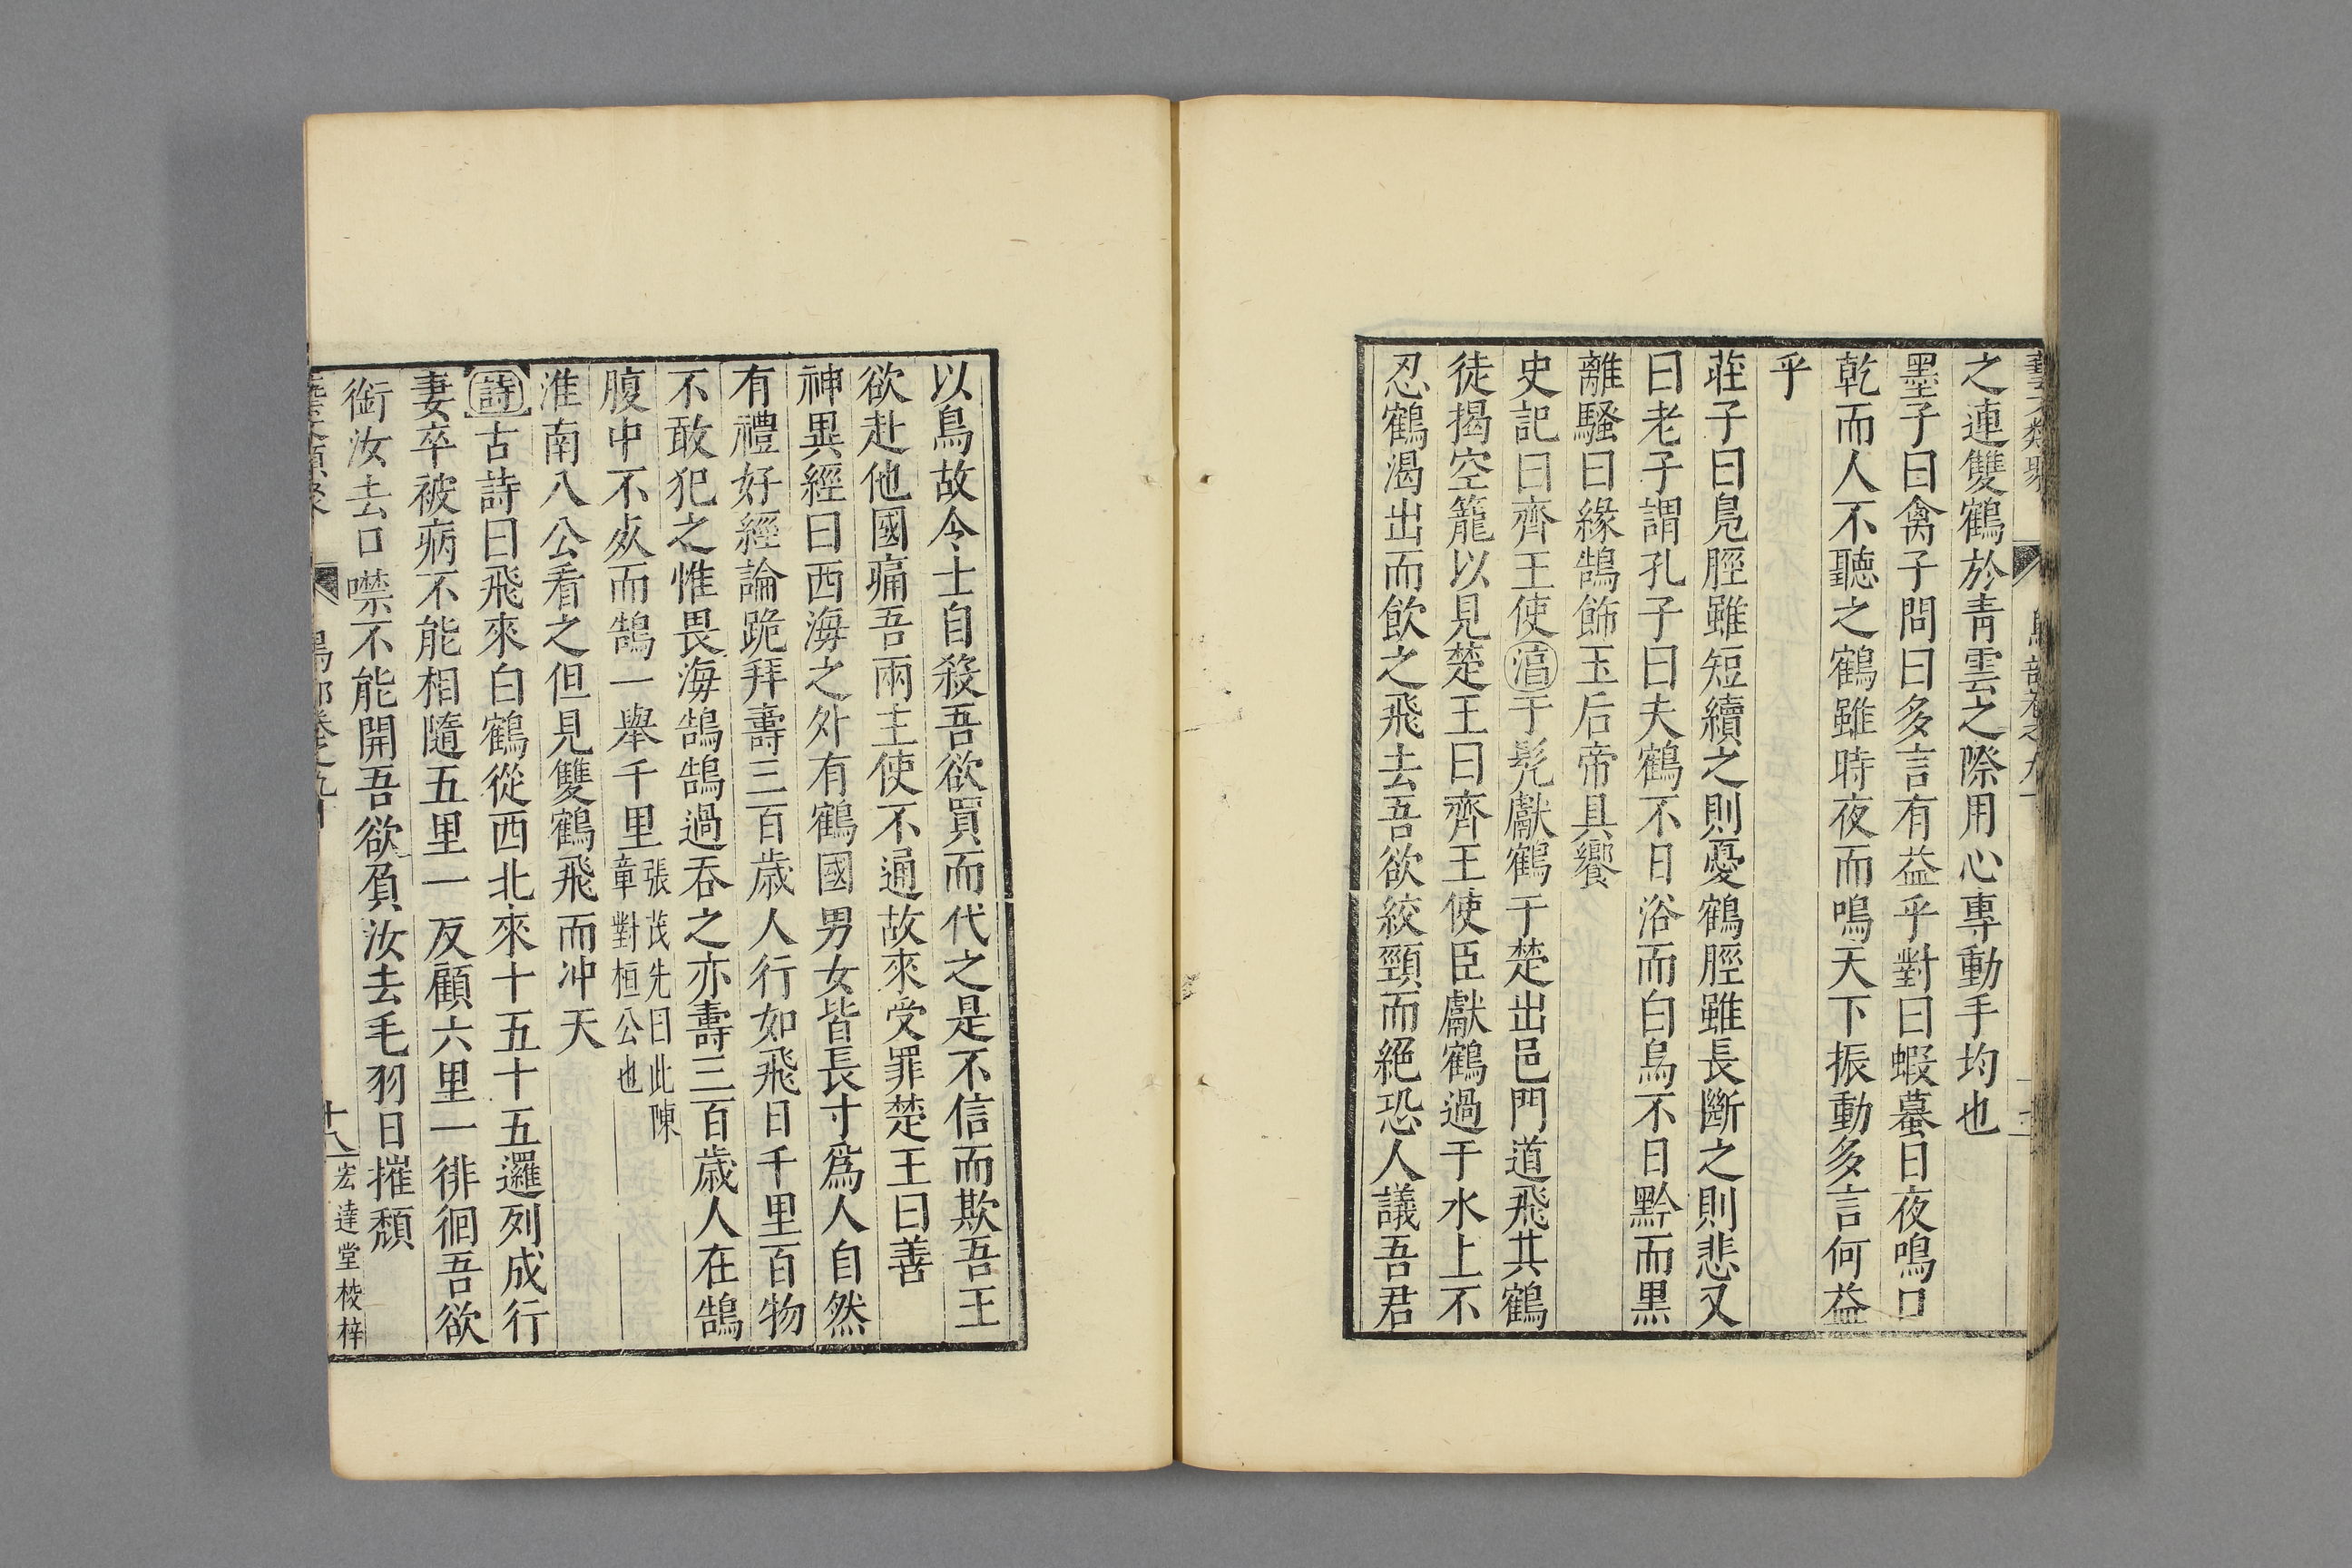 之連雙鶴於青雲之際用心專動手均也
墨子曰禽子問曰多言有益乎對曰蝦蟇日夜鳴口
乾而人不聽之鶴雖時夜而鳴天下振動多言何益
乎
莊子曰鳧脛雖短續之則憂鶴脛雖長斷之則悲又
曰老子謂孔子曰夫鶴不日浴而白烏不日黔而黒
離騷曰緣鵠飾玉后帝具饗
史記曰齊王使湻于髠獻鶴于楚出邑門道飛其鶴
徒揭空籠以見楚王曰齊王使臣獻鶴過于水上不
忍鶴渴出而飲之飛去吾欲絞頸而絕恐人議吾君
以鳥故令士自殺吾欲買而代之是不信而欺吾王
欲赴他國痛吾兩主使不通故來受罪楚王曰善
神異經曰西海之外有鶴國男女皆長寸爲人自然
有禮好經論跪拜壽三百歳人行如飛日千里百物
不敢犯之惟畏海鵠鵠過吞之亦壽三百歳人在鵠
腹中不死而鵠一舉千里張茂先曰此陳章對桓公也
淮南八公看之但見雙鶴飛而冲天
詩古詩曰飛來白鶴從西北來十五十五邏列成行
妻卒被病不能相隨五里一反顧六里一徘徊吾欲
銜汝去口噤不能開吾欲負汝去毛羽日摧頹
十八
宏達堂校梓